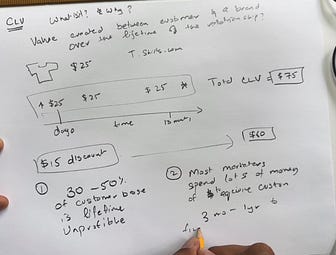 CLV What is it? & Why?
Value created between customer & a brand
over the lifetime of the relationship?
$25
T.Shirts.com
$25 $25 $25
Total CLV = $75
day 0 time 12 mnt.
$15 discount
$60
① 30 - 50%
of customer base
is lifetime
Unprofitible
② Most marketers
spend lots of money
acquire custom
3 mo - 1yr